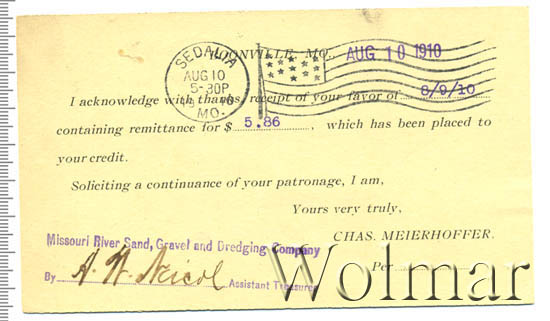 BOONVILLE, MO., AUG 10 1910
SEDALIA
AUG 10
5-30P
MO.
I acknowledge with thanks, receipt of your favor of 8/9/10
containing remittance for $ 5.86, which has been placed to
your credit.
Soliciting a continuance of your patronage, I am,
Yours very truly,
CHAS. MEIERHOFFER.
Missouri River Sand, Gravel and Dredging Company
Per
By A. W. Neicol Assistant Treasurer
Wolmar